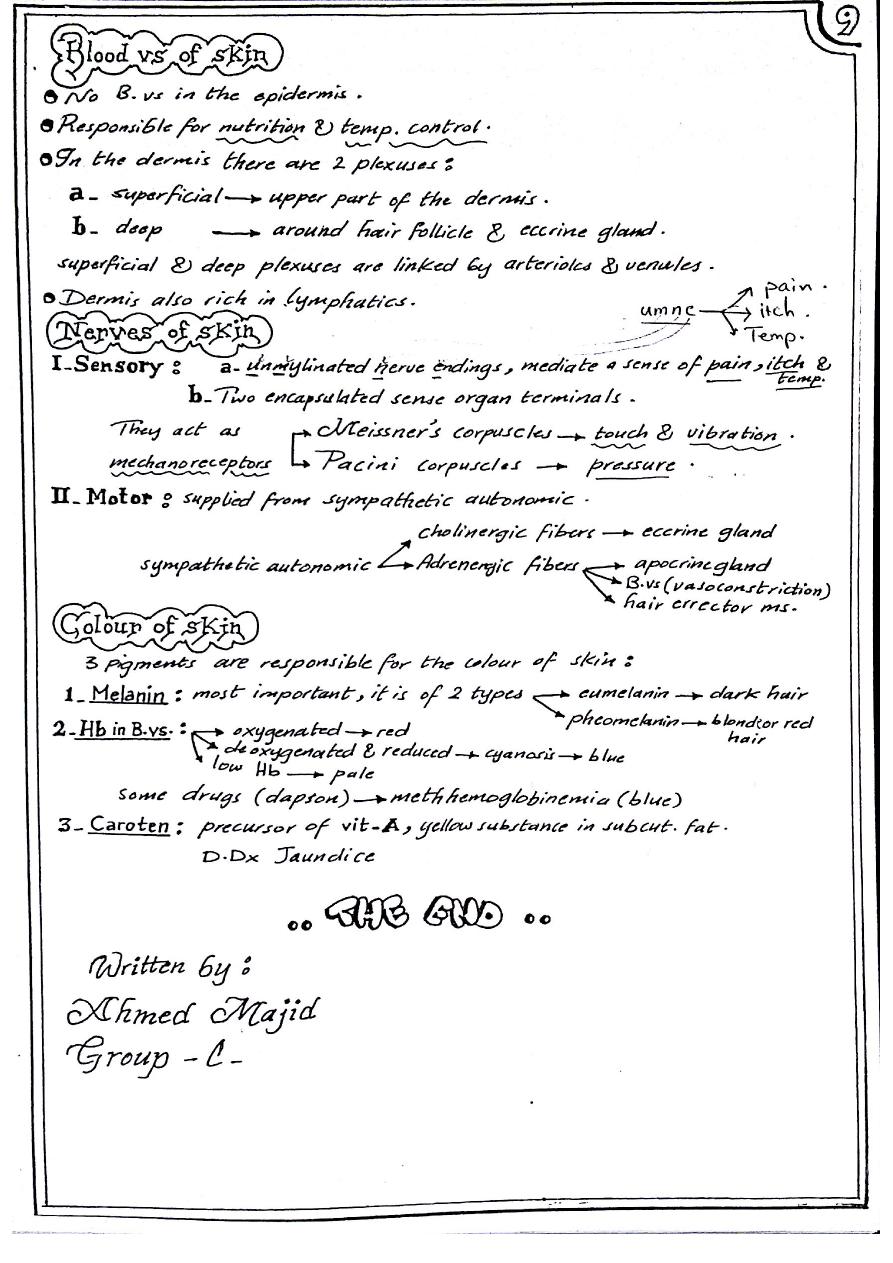 9
Blood vs of skin
No B.vs in the epidermis.
Responsible for nutrition & temp. control.
In the dermis there are 2 plexuses:
a- superficial → upper part of the dermis.
b- deep → around hair follicle & eccrine gland.
superficial & deep plexuses are linked by arterioles & venules.
Dermis also rich in lymphatics.
umne → pain.
→ itch.
→ Temp.
Nerves of skin
I-Sensory: a- unmylinated nerve endings, mediate a sense of pain, itch & temp.
b- Two encapsulated sense organ terminals.
They act as → Meissner's corpuscles → touch & vibration.
mechanoreceptors → Pacini corpuscles → pressure.
II-Motor: supplied from sympathetic autonomic.
cholinergic fibers → eccrine gland
sympathetic autonomic → Adrenergic fibers → apocrine gland
→ B.vs (vasoconstriction)
→ hair errector ms.
Colour of skin
3 pigments are responsible for the colour of skin:
1- Melanin: most important, it is of 2 types → eumelanin → dark hair
→ pheomelanin → blond or red
hair
2- Hb in B.vs.: → oxygenated → red
→ deoxygenated & reduced → cyanosis → blue
→ low Hb → pale
some drugs (dapson) → methhemoglobinemia (blue)
3- Caroten: precursor of vit-A, yellow substance in subcut. fat.
D.Dx Jaundice
.. THE END ..
Written by:
Ahmed Majid
Group - C -